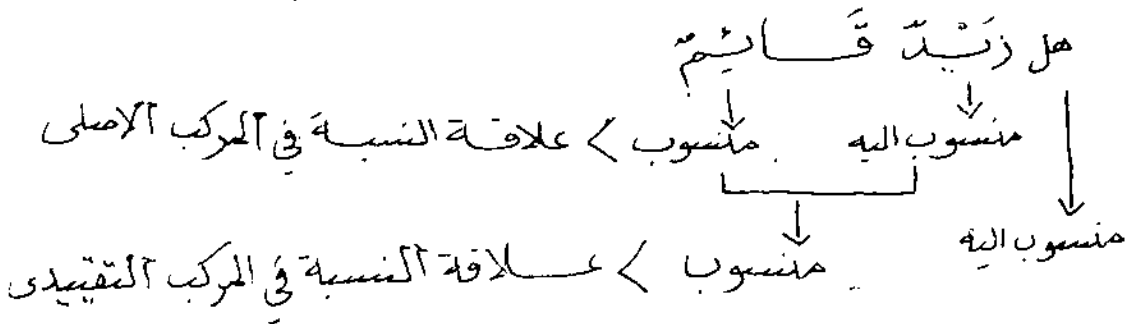 هل زَيْدٌ قَــائِمٌ
منسوب اليه منسوب > علاقة النسبة في المركب الاصلى
منسوب اليه
منسوب > علاقة النسبة في المركب التقييدى